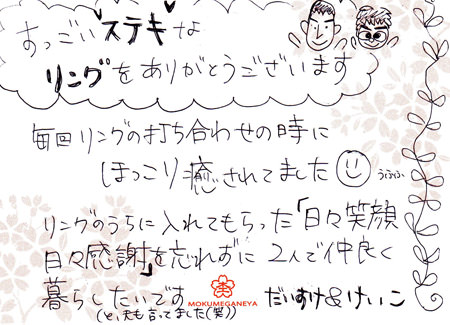 すっごいステキな
リングをありがとうございます
毎回リングの打ち合わせの時に
ほっこり癒されてました
うふふ
リングのうちに入れてもらった「日々笑顔
日々感謝」を忘れずに 2人で仲良く
暮らしたいです
MOKUMEGANEYA
だいすけ&けいこ
(と、夫も言ってました(笑))